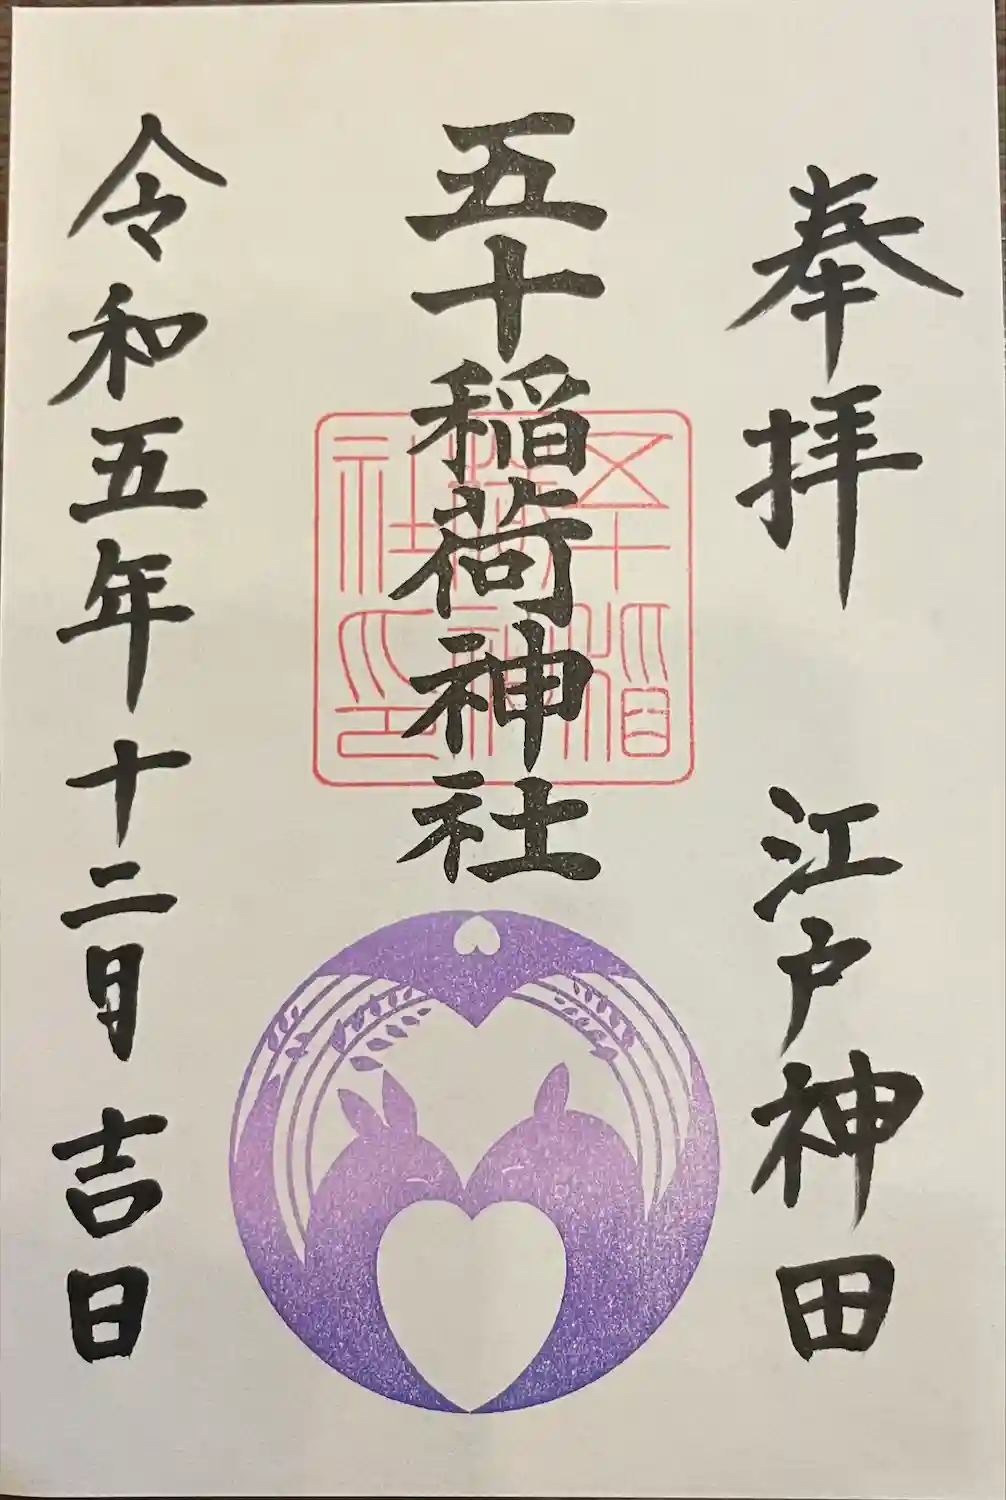 奉拝 江戸神田
五十稲荷神社
五十稲荷神社印
令和五年十二月吉日